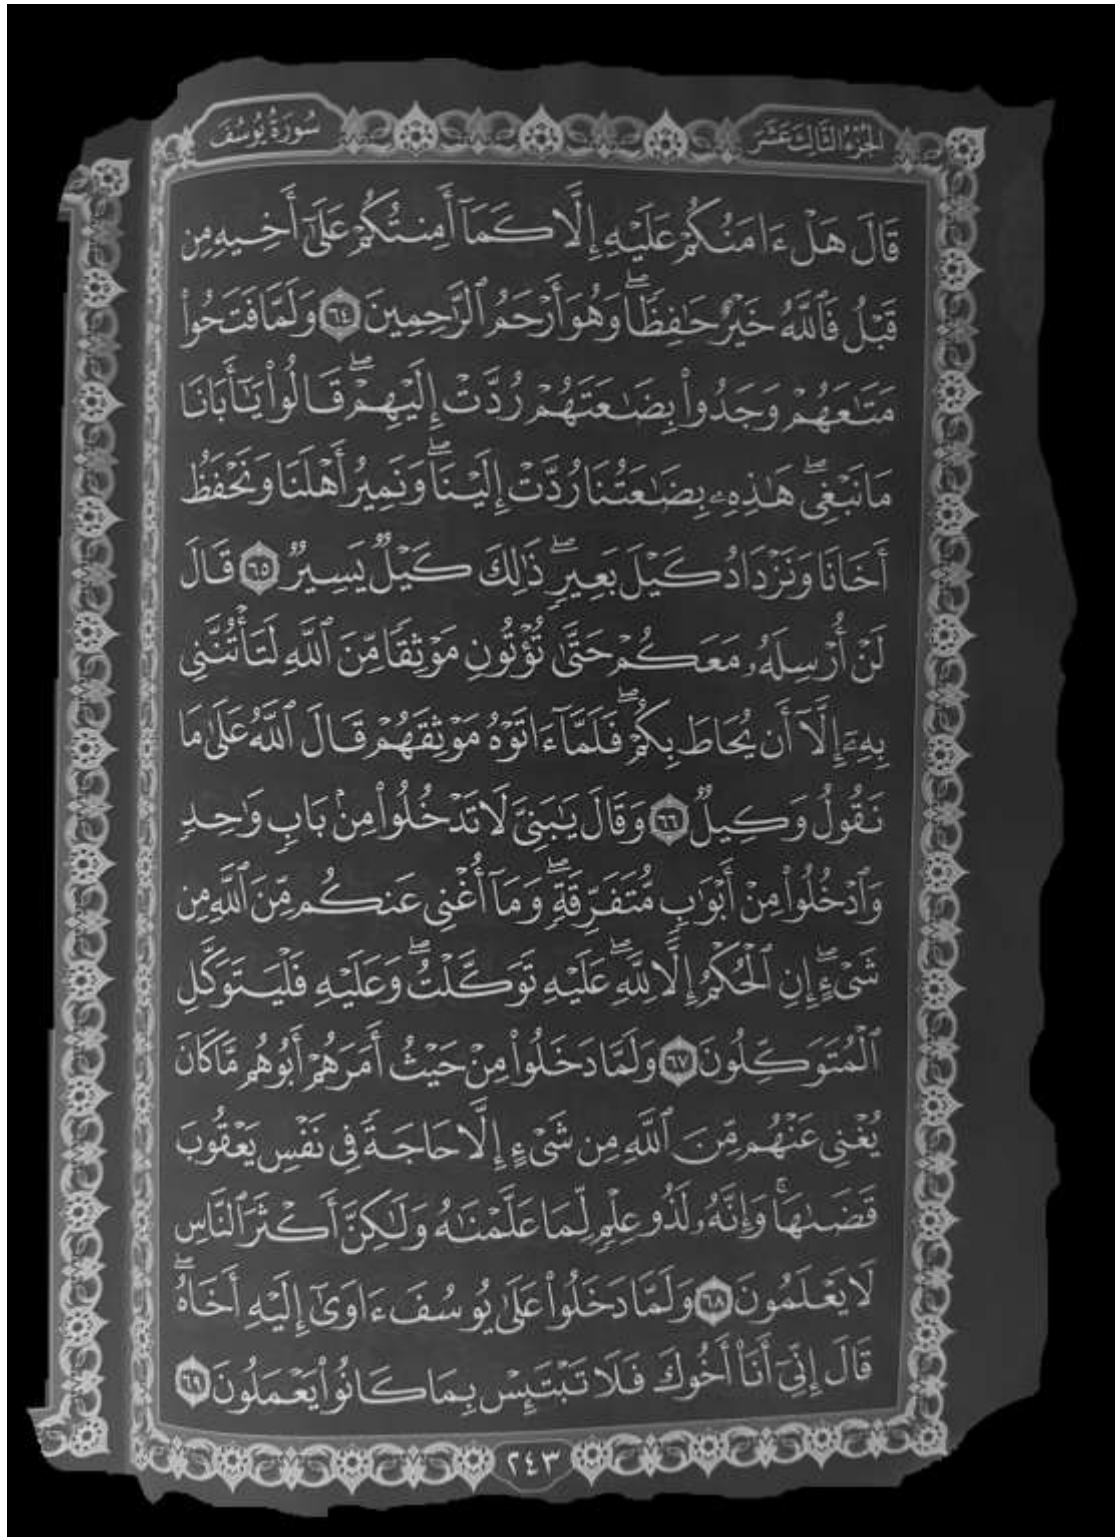 الجزء الثالث عشر
سورة يوسف
قَالَ هَلْ ءَامَنُكُمْ عَلَيْهِ إِلَّا كَمَآ أَمِنتُكُمْ عَلَىٰٓ أَخِيهِ مِن
قَبْلُ فَٱللَّهُ خَيْرٌ حَٰفِظٗاۖ وَهُوَ أَرْحَمُ ٱلرَّٰحِمِينَ ٦٤ وَلَمَّا فَتَحُواْ
مَتَٰعَهُمْ وَجَدُواْ بِضَٰعَتَهُمْ رُدَّتْ إِلَيْهِمْۖ قَالُواْ يَٰٓأَبَانَا
مَا نَبْغِيۖ هَٰذِهِۦ بِضَٰعَتُنَا رُدَّتْ إِلَيْنَاۖ وَنَمِيرُ أَهْلَنَا وَنَحْفَظُ
أَخَانَا وَنَزْدَادُ كَيْلَ بَعِيرٖۖ ذَٰلِكَ كَيْلٞ يَسِيرٞ ٦٥ قَالَ
لَنْ أُرْسِلَهُۥ مَعَكُمْ حَتَّىٰ تُؤْتُونِ مَوْثِقٗا مِّنَ ٱللَّهِ لَتَأْتُنَّنِي
بِهِۦٓ إِلَّآ أَن يُحَاطَ بِكُمْۖ فَلَمَّآ ءَاتَوْهُ مَوْثِقَهُمْ قَالَ ٱللَّهُ عَلَىٰ مَا
نَقُولُ وَكِيلٞ ٦٦ وَقَالَ يَٰبَنِيَّ لَا تَدْخُلُواْ مِنۢ بَابٖ وَٰحِدٖ
وَٱدْخُلُواْ مِنْ أَبْوَٰبٖ مُّتَفَرِّقَةٖۖ وَمَآ أُغْنِي عَنكُم مِّنَ ٱللَّهِ مِن
شَيْءٍۖ إِنِ ٱلْحُكْمُ إِلَّا لِلَّهِۖ عَلَيْهِ تَوَكَّلْتُۖ وَعَلَيْهِ فَلْيَتَوَكَّلِ
ٱلْمُتَوَكِّلُونَ ٦٧ وَلَمَّا دَخَلُواْ مِنْ حَيْثُ أَمَرَهُمْ أَبُوهُم مَّا كَانَ
يُغْنِي عَنْهُم مِّنَ ٱللَّهِ مِن شَيْءٍ إِلَّا حَاجَةٗ فِي نَفْسِ يَعْقُوبَ
قَضَىٰهَاۚ وَإِنَّهُۥ لَذُو عِلْمٖ لِّمَا عَلَّمْنَٰهُ وَلَٰكِنَّ أَكْثَرَ ٱلنَّاسِ
لَا يَعْلَمُونَ ٦٨ وَلَمَّا دَخَلُواْ عَلَىٰ يُوسُفَ ءَاوَىٰٓ إِلَيْهِ أَخَاهُۖ
قَالَ إِنِّيٓ أَنَا۠ أَخُوكَ فَلَا تَبْتَئِسْ بِمَا كَانُواْ يَعْمَلُونَ ٦٩
٢٤٣